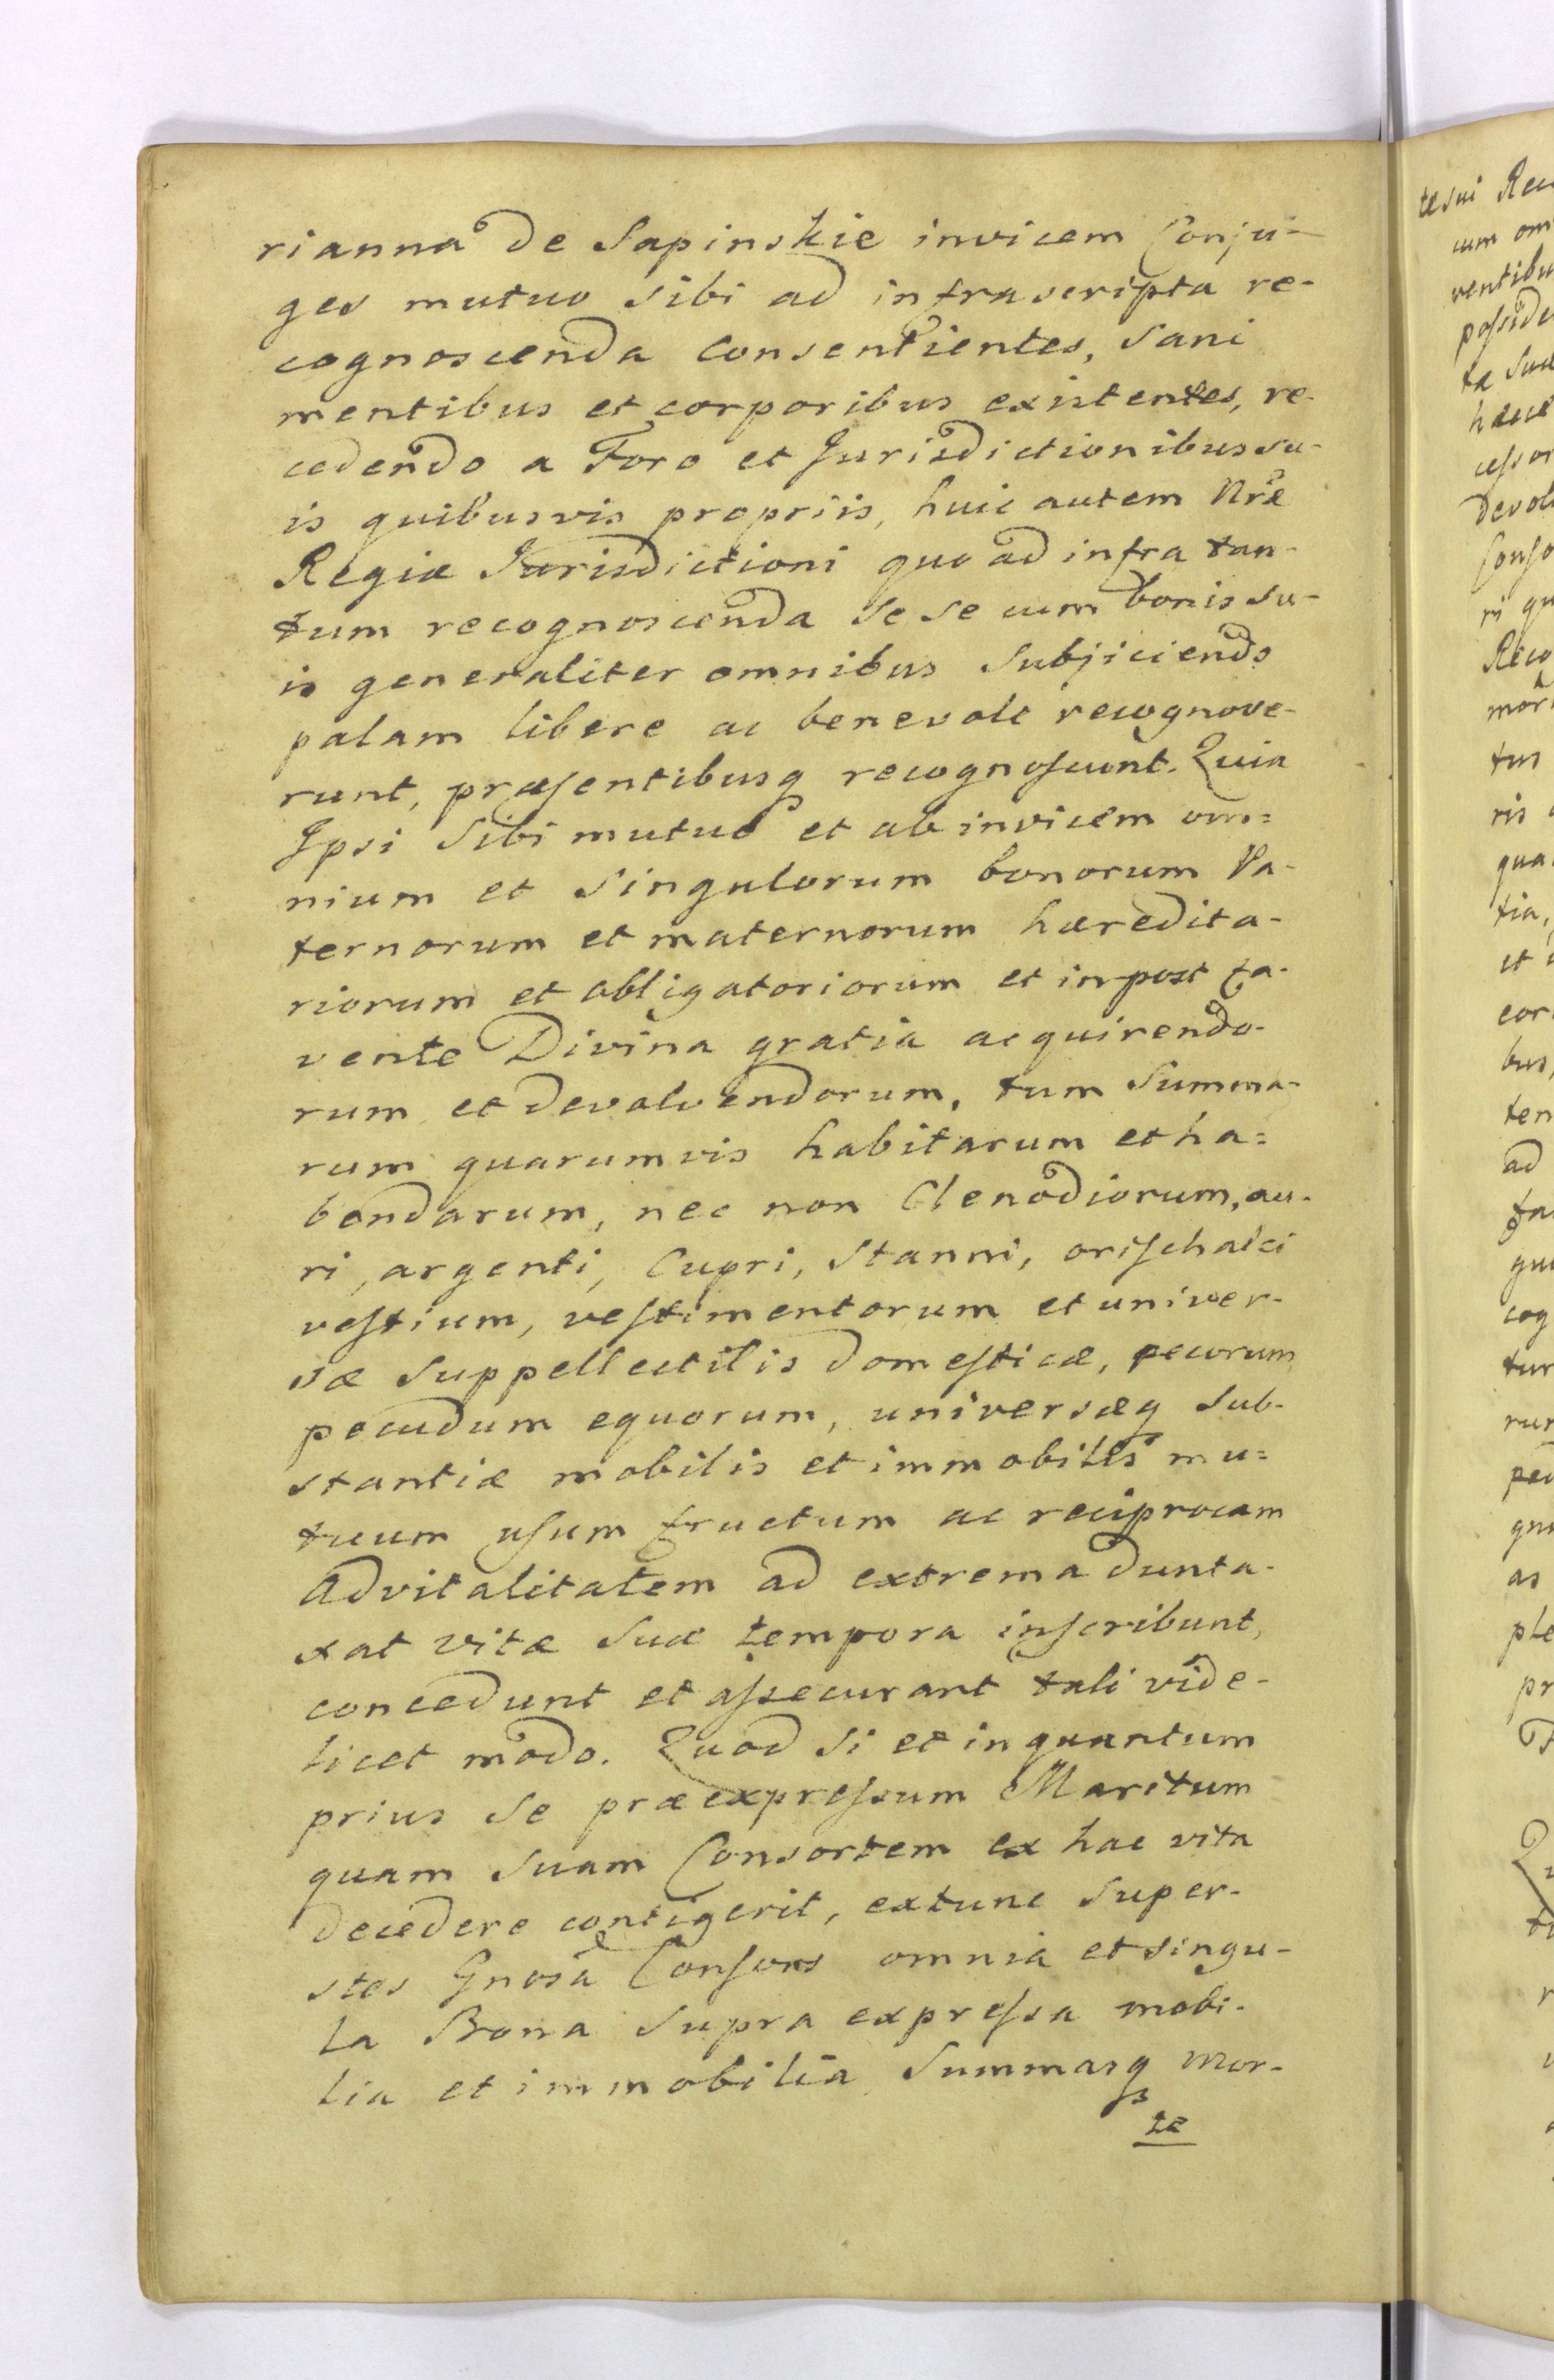 rianna de Sapinskie invicem Conju-
ges mutuo sibi ad infrascripta re-
cognoscenda Consentientes, Sani
mentibus et corporibus existentes, re-
cedendo a Foro et Jurisdictionibus su-
is quibusvis propriis, huic autem Nræ
Regiæ Jurisdictioni quo ad infra tan-
tum recognoscenda se se cum bonis su-
is generaliter omnibus Subjiciendo
palam libere ac benevole recognove-
runt, præsentibusq recognoscunt. Quia
Ipsi Sibi mutuo et ab invicem om=
nium et Singulorum bonorum Pa-
ternorum et maternorum hæredita-
riorum et obligatoriorum et inpost fa-
vente Divina gratia acquirendo-
rum et devolvendorum, tum Summa-
rum quarumvis habitarum et ha=
bendarum, nec non Clenodiorum, au-
ri, argenti, Cupri, Stanni, orischalci
vestium, vestimentorum et univer-
sæ Suppellectilis domesticæ, pecorum
pecudum equorum, universæq Sub-
stantiæ mobilis et immobilis mu=
tuum usum fructum ac reciprocam
Advitalitatem ad extrema dunta-
xat vitæ Suæ tempora inscribunt,
concedunt et assecurant tali vide-
licet modo. Quod Si et in quantum
prius Se præexpressum Maritum
quam Suam Consortem ex hac vita
decedere contigerit, extunc Super-
stes Gnosa Consors omnia et singu-
la Bona Supra expressa mobi-
lia et immobilia Summasq mor-
te